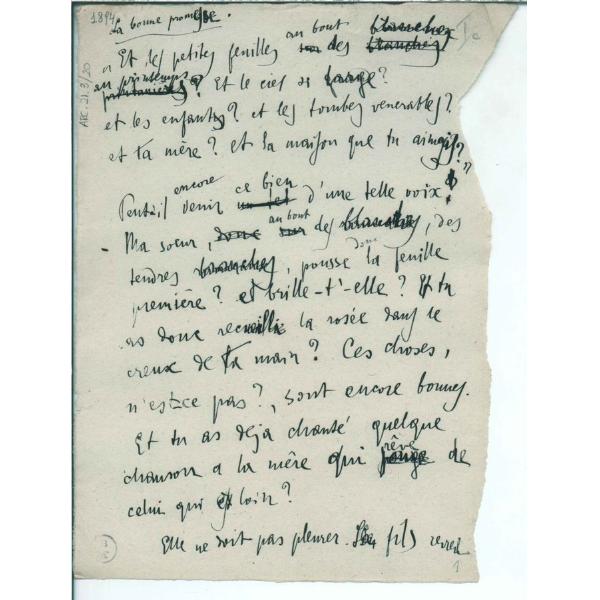 1894
La bonne promesse.
« Et les petites feuilles au bout des branches
au printemps? Et le ciel si large?
et les enfants? et les tombes venerables?
et ta mère? et la maison que tu aimais?"
Peut-il encore venir ce bien d'une telle voix!
Ma soeur, au bout des branches, des
tendres branches, pousse donc la feuille
première? et brille-t'-elle? Et tu
as donc recueilli la rosée dans le
creux de ta main? Ces choses,
n'est-ce pas?, sont encore bonnes.
Et tu as déja chanté quelque
chanson a la mère qui rêve de
celui qui est loin?
Elle ne doit pas pleurer. fils
1
ARC. 21.3/20